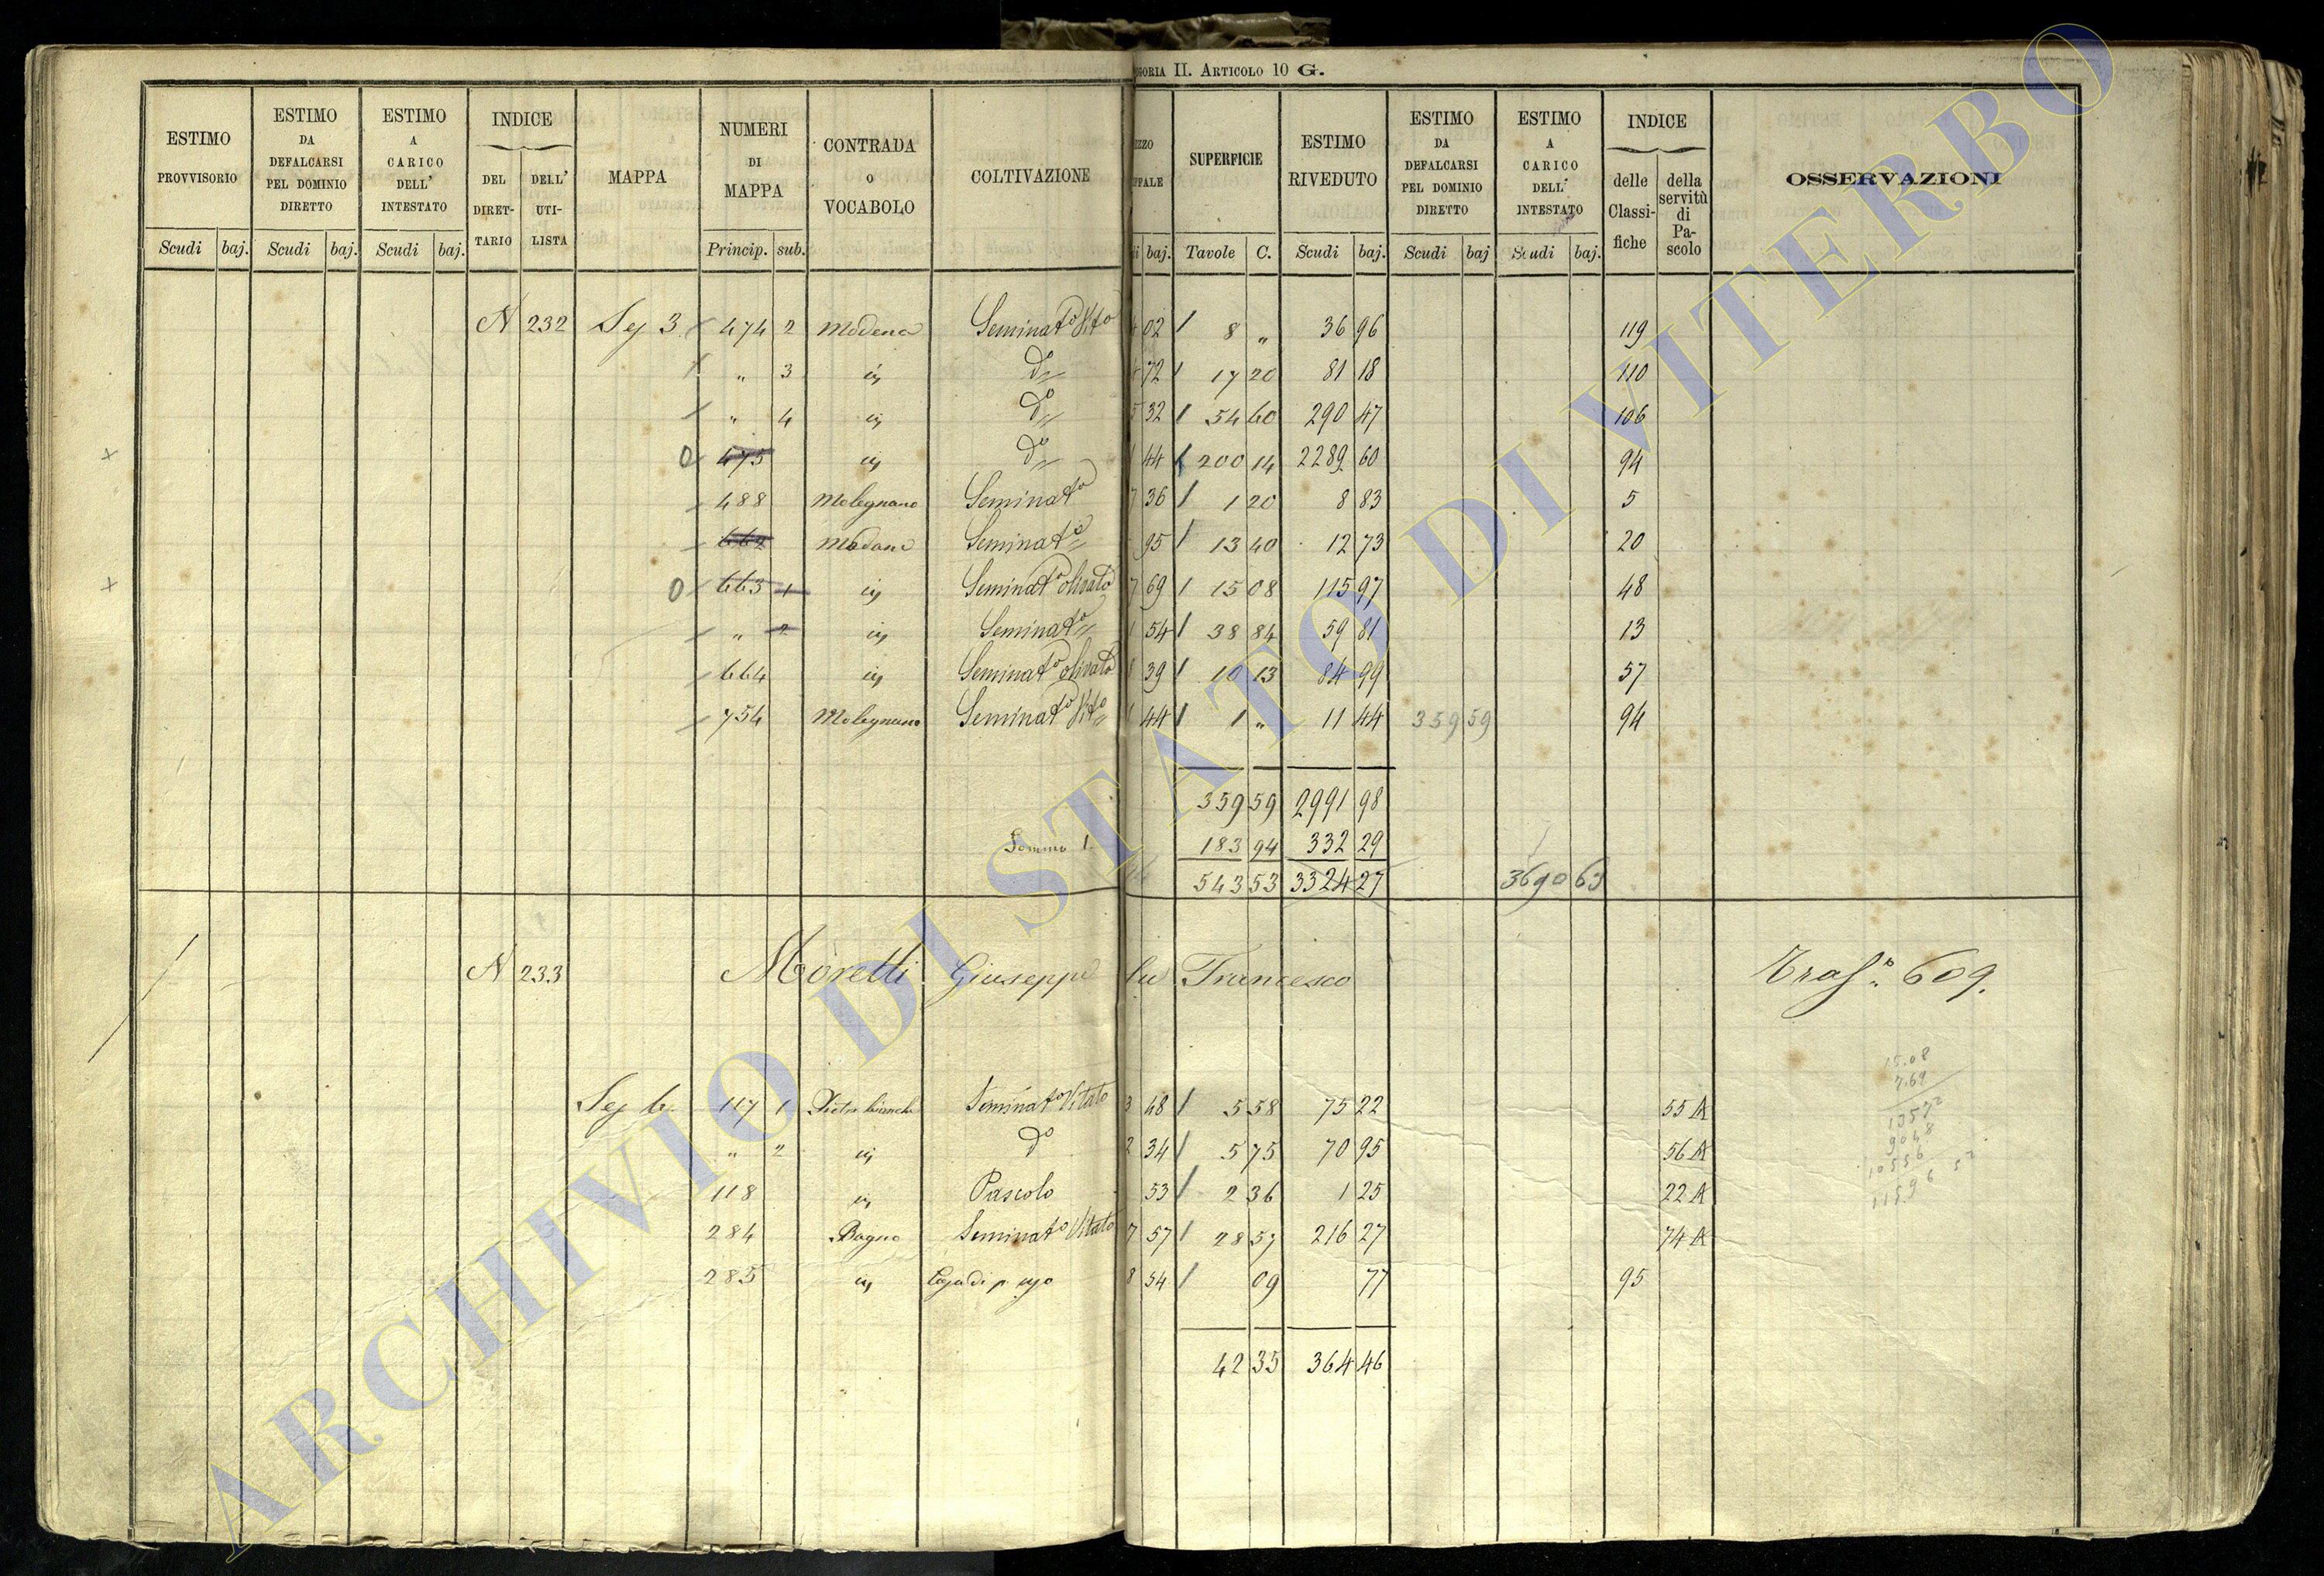 GORIA II. ARTICOLO 10 G.
ESTIMO PROVVISORIO
ESTIMO DA DEFALCARSI PEL DOMINIO DIRETTO
ESTIMO A CARICO DELL' INTESTATO
INDICE
DEL DIRET-TARIO
DELL' UTI-LISTA
MAPPA
NUMERI DI MAPPA
CONTRADA O VOCABOLO
COLTIVAZIONE
SUPERFICIE
ESTIMO RIVEDUTO
ESTIMO DA DEFALCARSI PEL DOMINIO DIRETTO
ESTIMO A CARICO DELL' INTESTATO
INDICE
delle Classi-fiche
della servitù di Pa-scolo
OSSERVAZIONI
Scudi baj. Scudi baj. Scudi baj. Princip. sub. baj. Tavole C. Scudi baj. Scudi baj Scudi baj.
N 232 Sez 3 474 2 Modena Seminato Vito 02 8 " 36 96 119
" 3 id do 72 17 20 81 18 110
" 4 id do 32 54 60 290 47 106
0 475 id do 44 200 14 2289 60 94
488 Molegnano Seminato 36 1 20 8 83 5
662 Seminato 95 13 40 12 73 20
0 663 1 id Seminato olivato 69 15 08 115 97 48
" 2 id Seminato 54 38 84 59 81 13
664 id Seminato olivato 39 10 13 84 99 57
754 Molegnano Seminato Vito 44 1 " 11 44 359 59 94
359 59 2991 98
Somma 1. 183 94 332 29
543 53 3324 27 3690 63
N 233 Moretti Giuseppe fu Francesco Trasp. 609.
Sez 6 117 1 Pietra bianca Seminato Vitato 48 5 58 75 22 55 A
" 2 id do 34 5 75 70 95 56 A
118 id Pascolo 53 2 36 1 25 22 A
284 Bagno Seminato Vitato 57 28 57 216 27 74 A
285 id 54 09 77 95
42 35 364 46
15.08
7.69
13572
9048
10556
ARCHIVIO DI STATO DI VITERBO